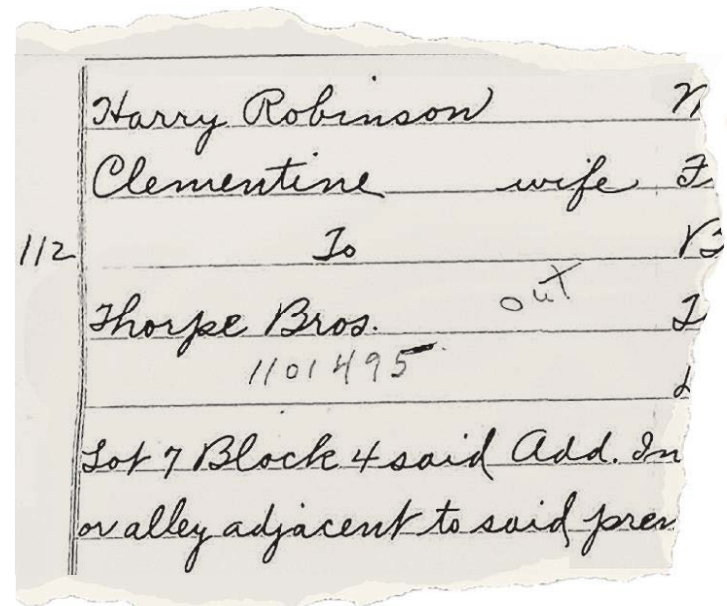 Harry Robinson
Clementine wife
112 To
out
Thorpe Bros.
1101495
Lot 7 Block 4 said Add. In
or alley adjacent to said prem